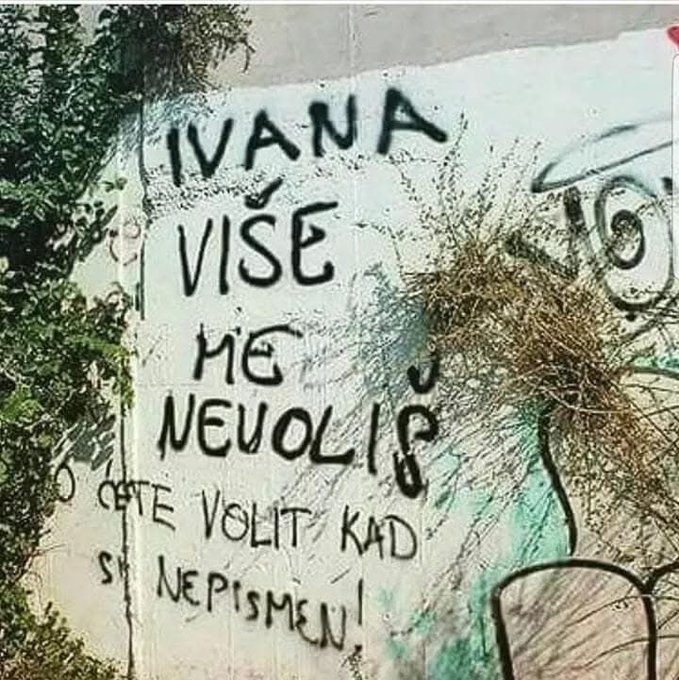 IVANA
VIŠE
ME
NEVOLIŠ
O ĆE TE VOLIT KAD
SI NEPISMEN!